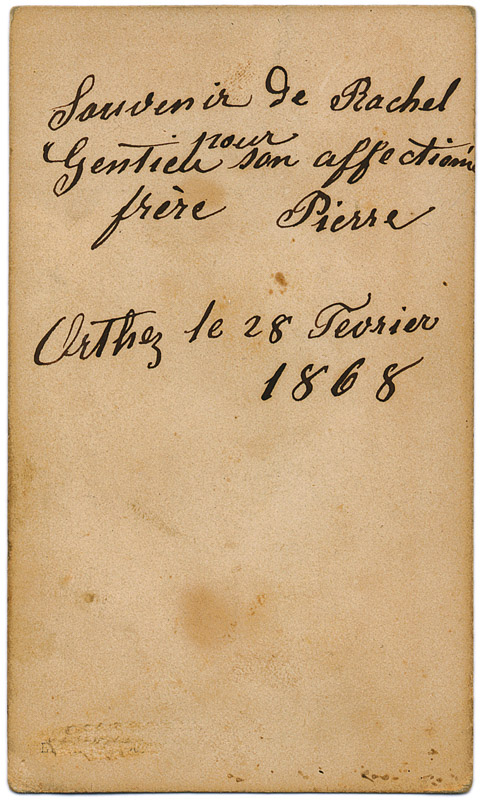 Souvenir de Rachel
Gentieu pour son affectionné
frère Pierre
Orthez le 28 Fevrier
1868